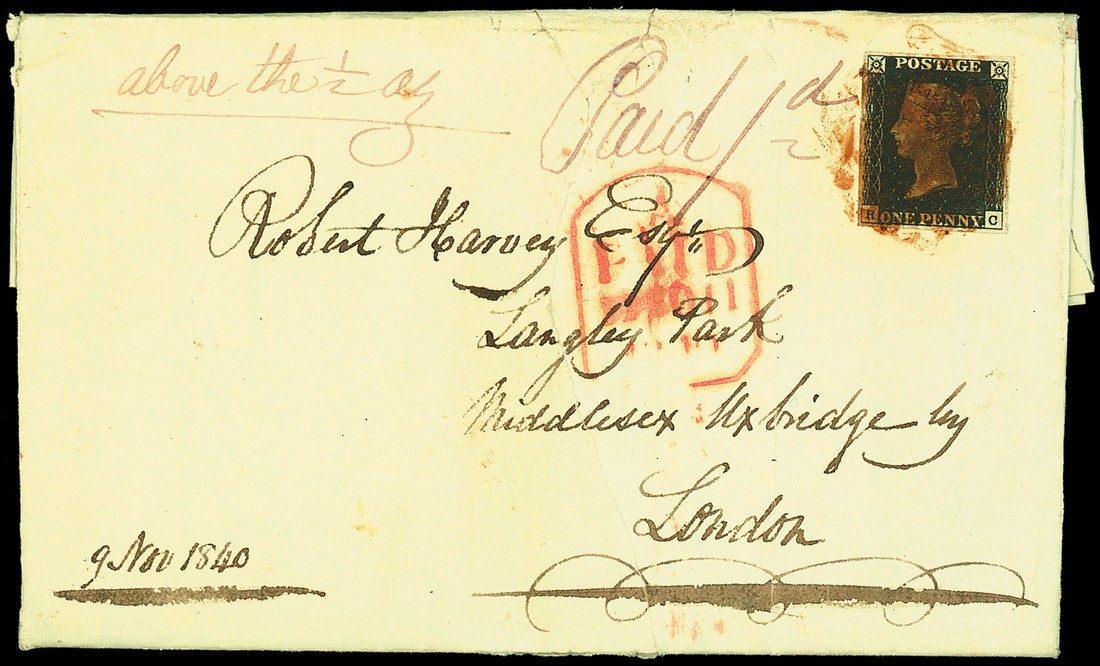 above the ½ oz
Paid 1d
POSTAGE
ONE PENNY
C
Robert Harvey Esqr
PAID
Langley Park
Middlesex Uxbridge by
London
9 Nov 1840